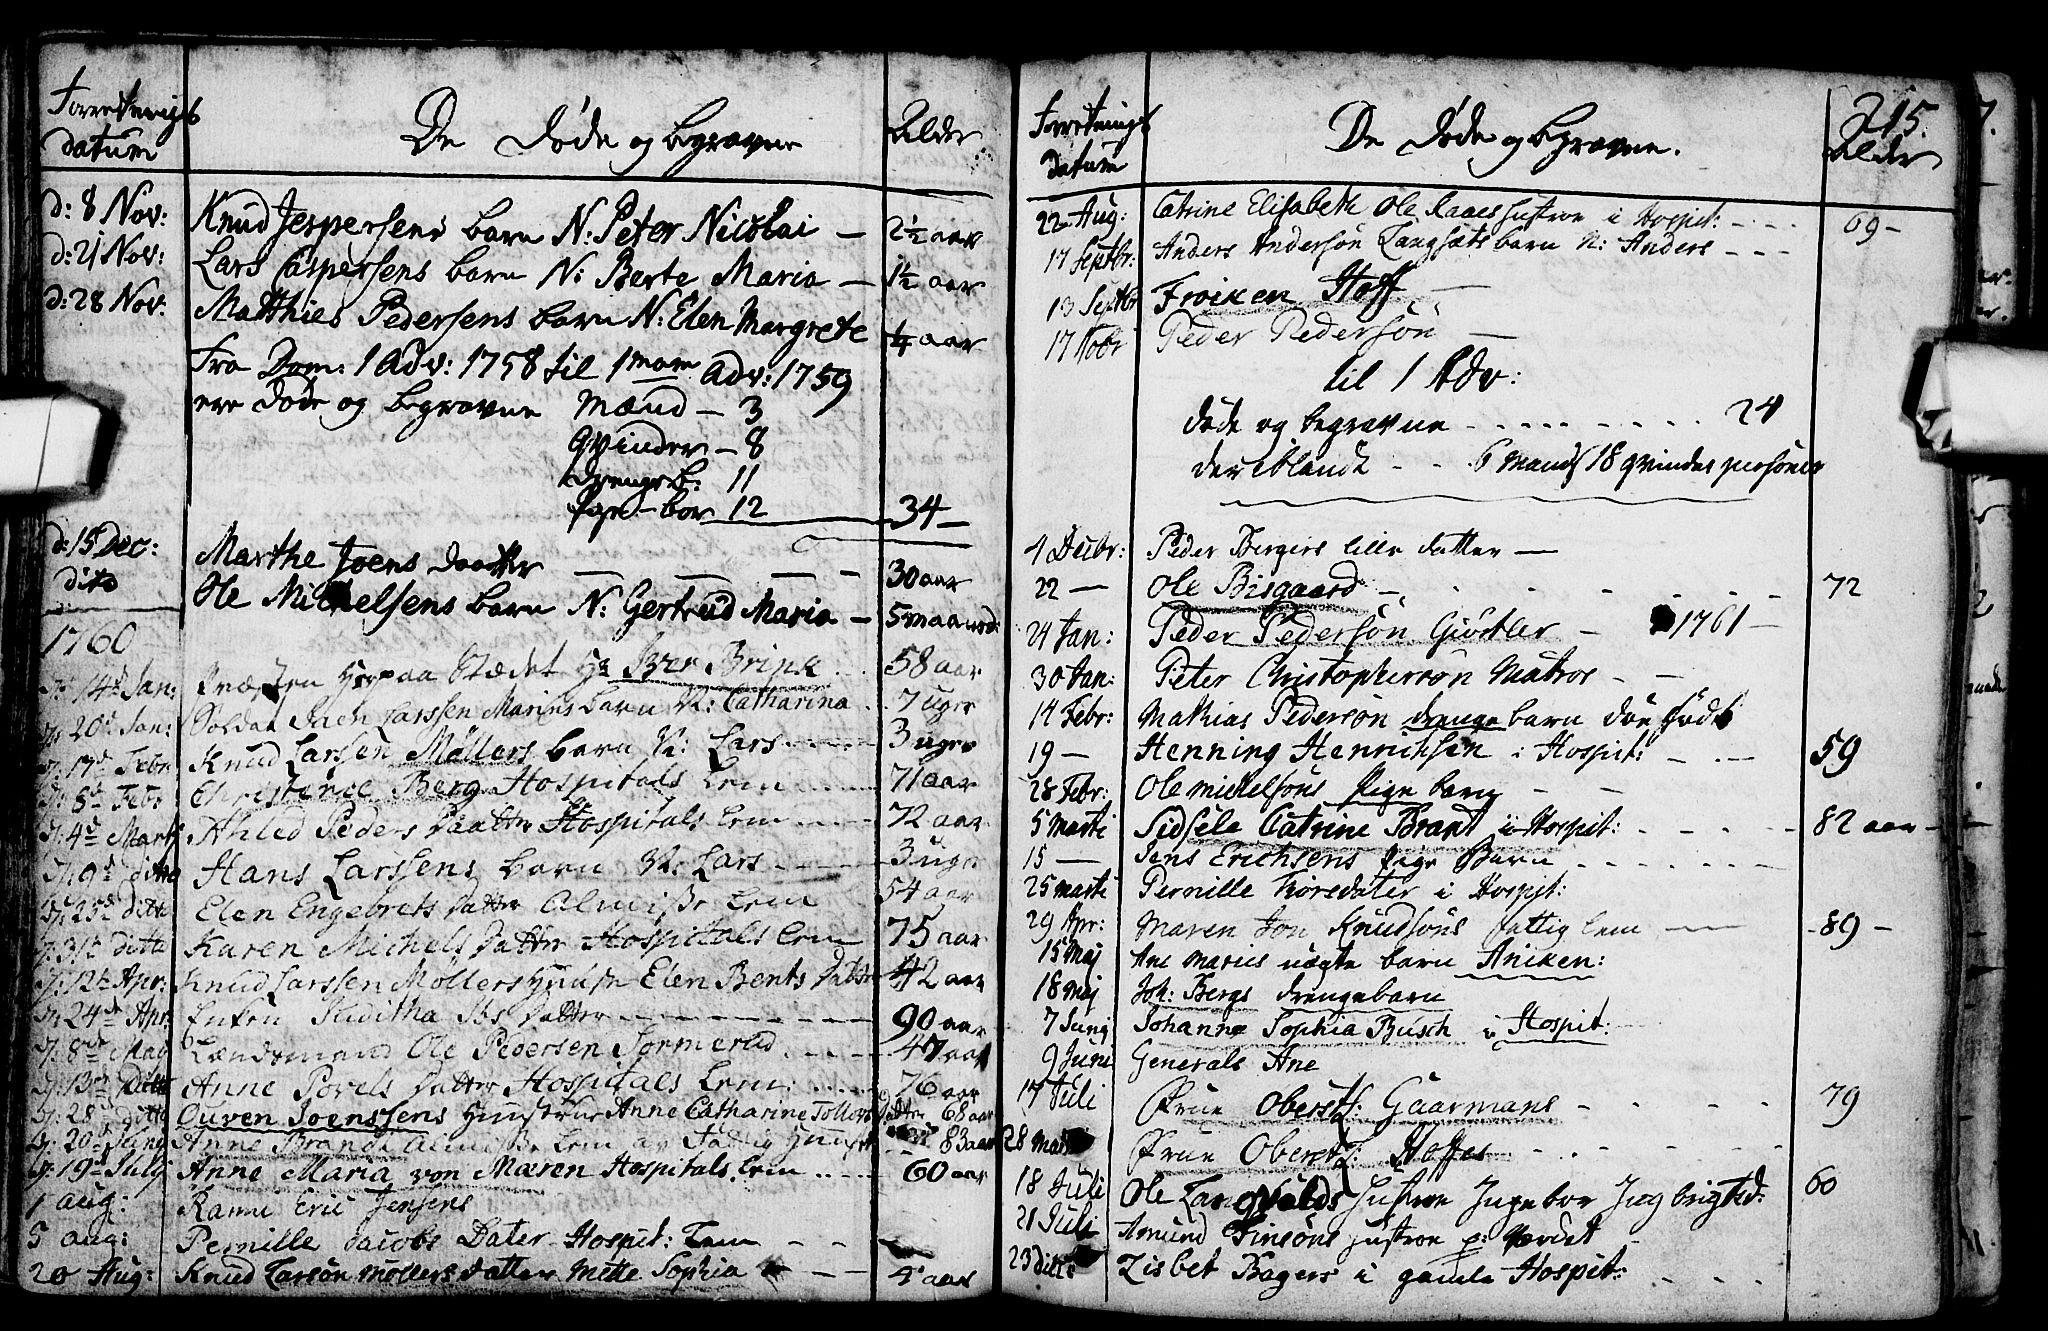 Forretnings datum
De døde og begravne
Alder
d: 8 Nov: Knud Jespersens barn N: Peter Nicolai — 2½ aar
d: 21 Nov: Lars Caspersens barn N: Berte Maria — 1½ aar
d: 28 Nov: Matthies Pedersens barn N: Elen Margrete ¼ aar
Fra Dom: 1 Adv: 1758 til 1 Adv: 1759
ere døde og begravne Mænd — 3
qvinder — 8
drenge b: 11
pige-bør 12 34 —
d: 15 Dec: Marthe Joens daatter — — — — 30 aar
dito Ole Michelsens barn N: Gertrud Maria — 5 maaned:
1760
d: 14de Jan: Præsten her paa Stædet Hr Iver Brink 58 aar
d: 20de Jan: Soldat Larssen barn N: Catharina 7 uger
d: 17de Febr: Knud Larssen Møllers barn N: Lars 3 uger
Febr Christence Berg Hospitals Lem 71 aar
d: 4de Marts Ahled Peders daatter Hospitals Lem 72 aar
d: 9de ditto Hans Larssens barn N: Lars 3 uger
d: 25de ditto Elen Engebrets datter Almisse Lem 54 aar
d: 31te ditto Karen Michels datter Hospitals Lem 75 aar
d: 12te Apr: Knud Larssen Møllers Elen Bents datter 42 aar
d: 24de Apr: Enken Juditha Ibs datter 90 aar
d: 8de Maj Lændsmand Ole Pedersen Sørmerud 47 aar
d: 13de ditto Anne Povels datter Hospitals Lem: 76 aar
d: 28de ditto Ouven Joenssens Hustrue Anne Catharine datter 68 aar
d: 20de Junij Anne Brandt Almisse Lem av 83 aar
d: 19de Julij Anne Maria von Mæren Hospitals Lem 60 aar
1 aug: Eric Jensens
5 aug: Pernille Jacobs Dater Hospit: Lem — —
20 Aug: Knud Larsøn Møllers datter Mette Sophia — — 4 aar
215.
Forretnings datum
De døde og begravne.
Alder
22 Aug: Catrine Elisabeth Ole Raaes hustroe i Hospit: 69 —
17 Septbr: Anders Andersøn Langsæts barn N: Anders
13 Septbr Frøiken Hoff —
17 Nobr Peder Pedersøn —
til 1 Adv:
døde og begravne 24
dereblandt 6 Mands 18 qvindes personer
4 Decbr: Peder Bergers lille datter —
22 — Ole Bisgaard 72
24 Jan: Peder Pedersøn Giørtler — 1761 —
30 Jan: Peter Christophersøn Matros
14 Febr: Mathias Pedersøn drenge barn død født
19 — Henning Henrichsen i Hospit: 59
28 Febr: Ole Michelsøns pige barn
5 Marti Sidsele Catrine Brant i Hospit: 82 aar —
15 — Jens Erichsens pige Barn
25 Marti Pernille Toresdater i Hospit:
29 Apr: Maren Jon Knudsøns fattig lem — 89 —
15 Maj Ane Maries uægte barn Aniken:
18 Maj Joh: Bergs drengebarn
7 Junij Johanna Sophia Busch i Hospit:
9 Juni Generals Ane
17 Juli Frue Oberstl: Gaarmans 79
28 Frue Oberstl: Hoffes
18 Juli Ole Langvalds hustroe Ingebor Ingbrigtsd: 60
21 Juli Amund Finsøns hustroe p: Værdet
23 ditto Lisbet Bagers i gamle Hospit: